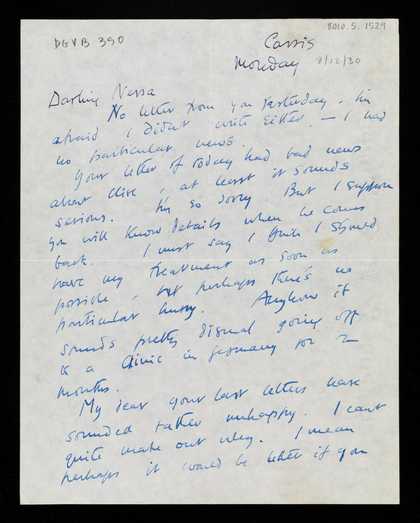 DGVB 390
8010.5.1529
Cassis
Monday 8/12/30
Darling Nessa
No letter from you yesterday. I'm
afraid I didnt write either – I had
no particular news.
Your letter of today had bad news
about Clive, at least it sounds
serious. I'm so sorry But I suppose
you will know details when he comes
back. I must say I think I should
have my treatment as soon as
possible, but perhaps there's no
particular hurry. Anyhow it
sounds pretty dismal going off
to a clinic in Germany for 2
months.
My dear your last letters have
sounded rather unhappy. I cant
quite make out why. I mean
perhaps it would be better if you